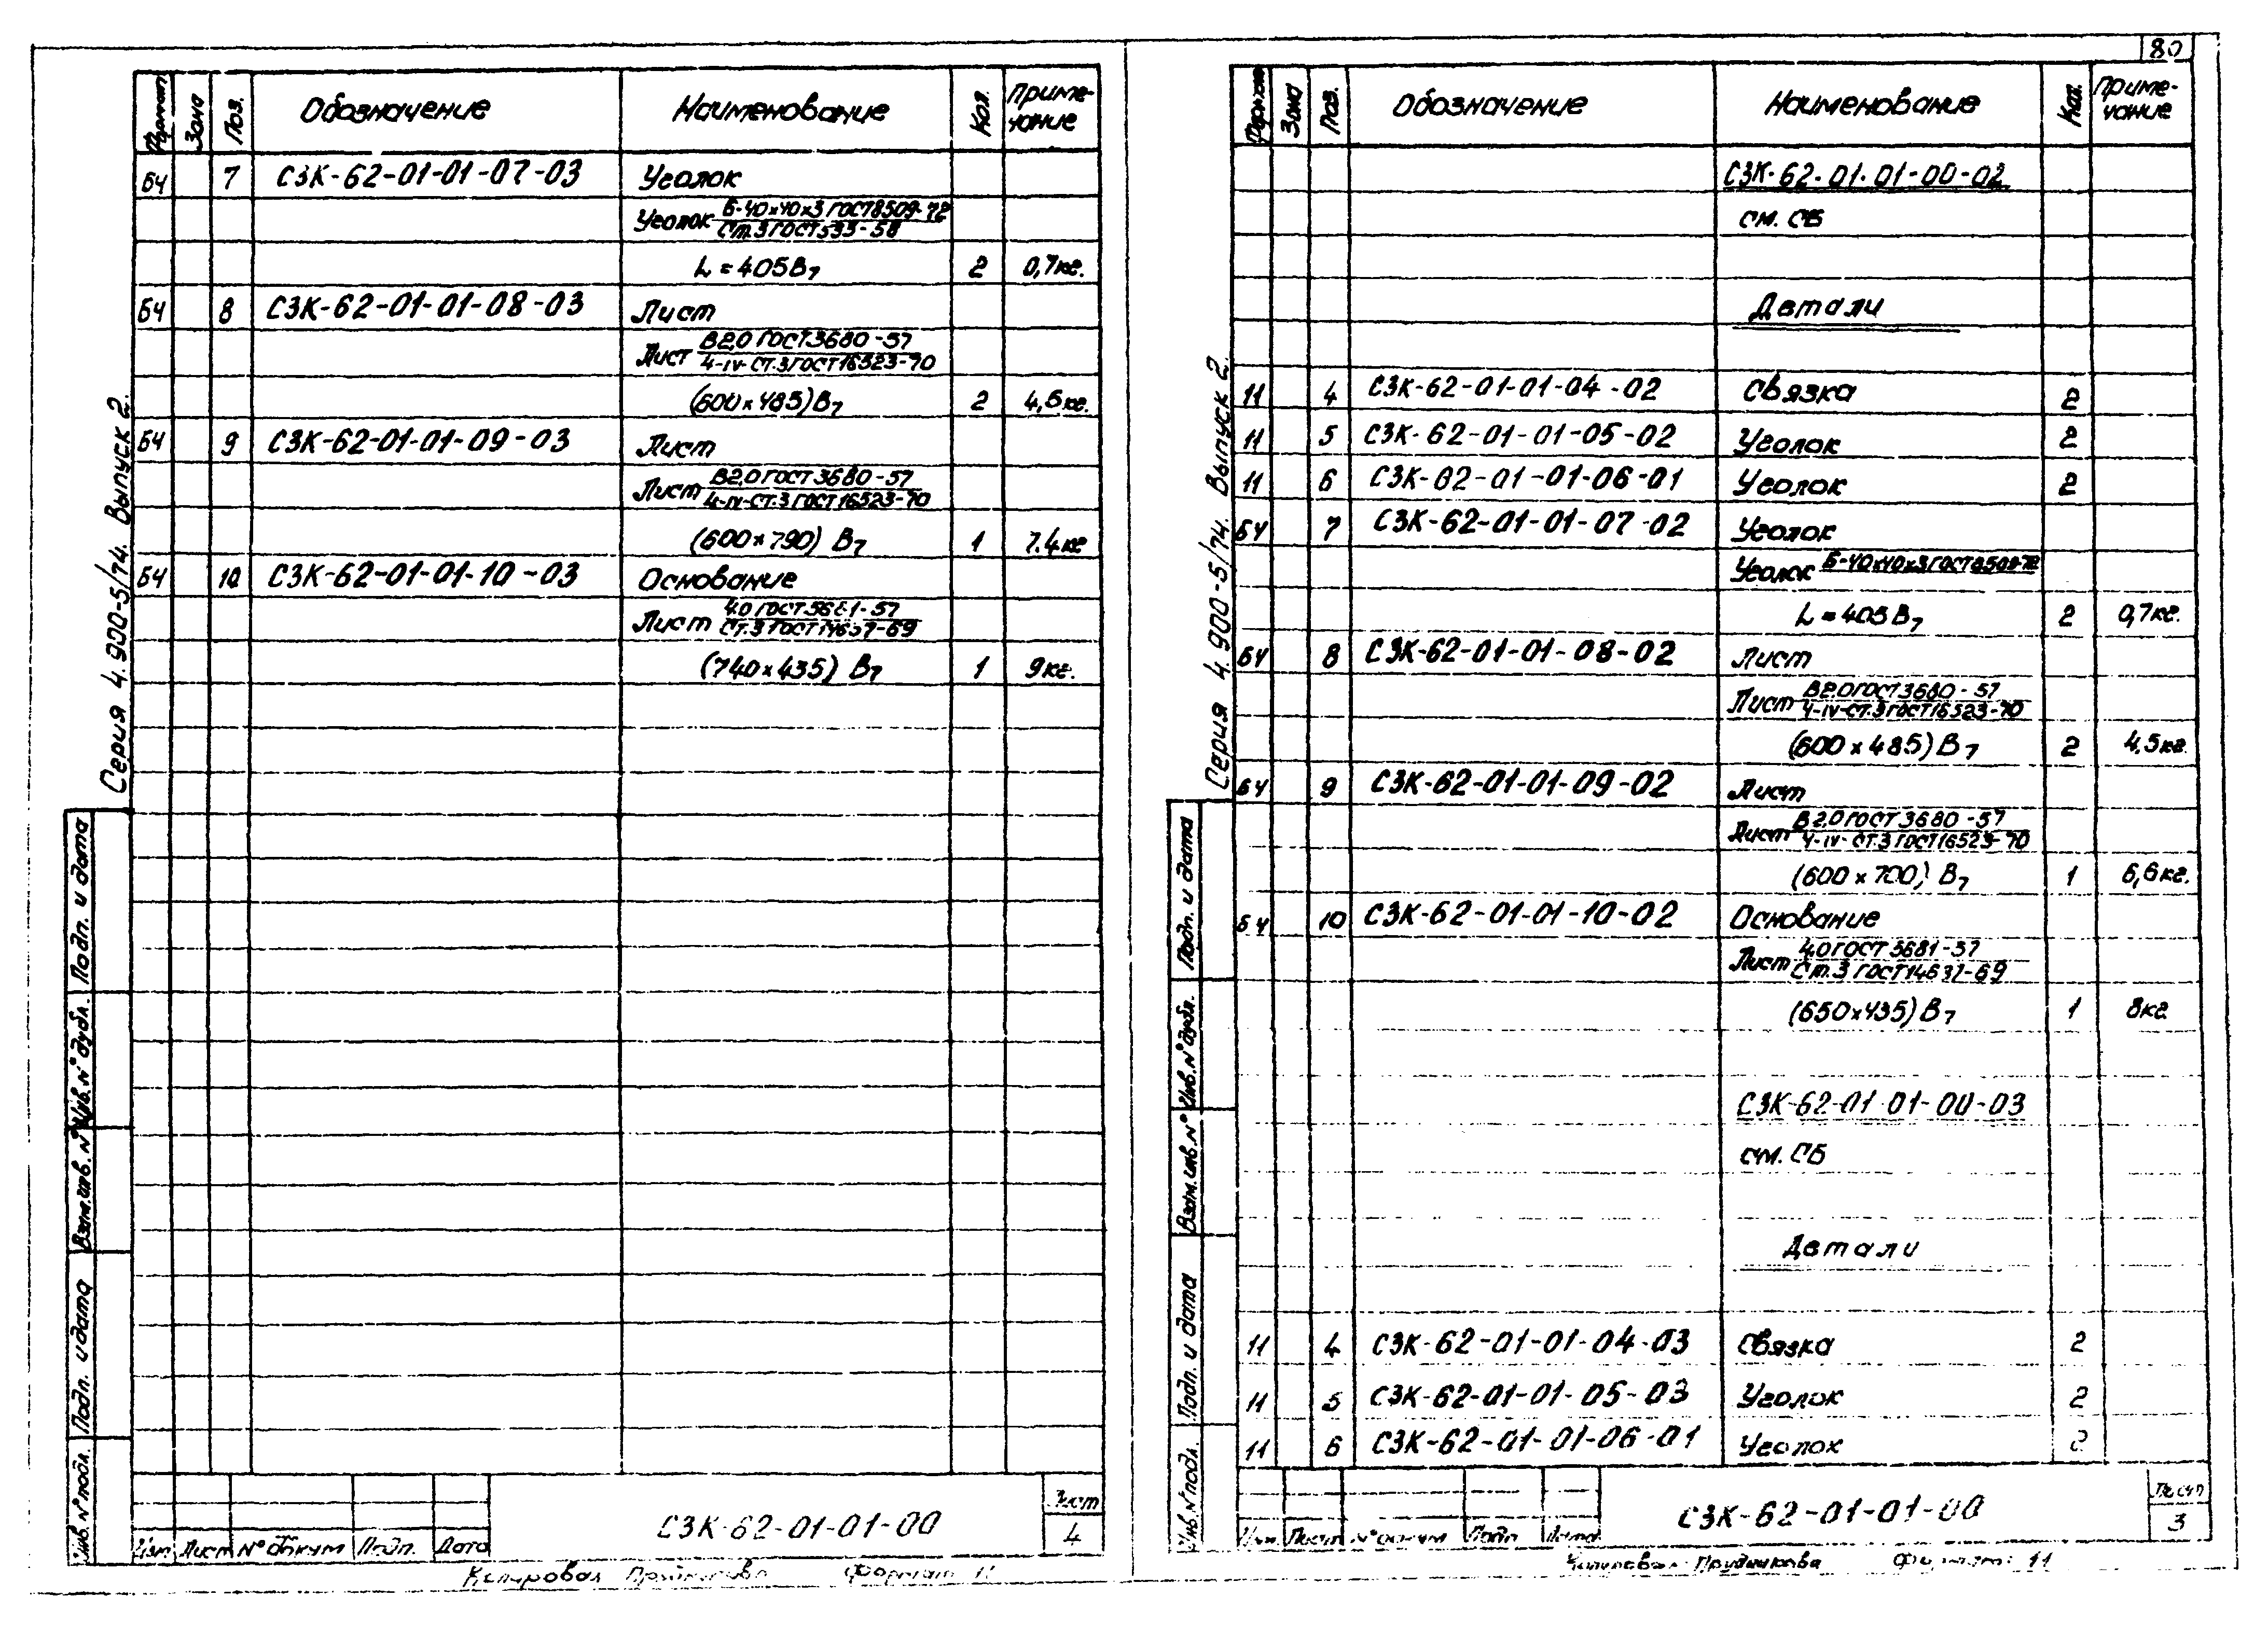 80
Серия 4.900-5/74. Выпуск 2.
Формат Зона Поз. Обозначение Наименование Кол. Примечание
БЧ 7 СЗК-62-01-01-07-03 Уголок
Уголок Б-40х40х3 ГОСТ 8509-72
Ст.3 ГОСТ 535-58
L=405 В7 2 0,7кг.
БЧ 8 СЗК-62-01-01-08-03 Лист
Лист В2,0 ГОСТ 3680-57
4-IV-Ст.3 ГОСТ 16523-70
(600х485) В7 2 4,5кг.
БЧ 9 СЗК-62-01-01-09-03 Лист
Лист В2,0 ГОСТ 3680-57
4-IV-Ст.3 ГОСТ 16523-70
(600х790) В7 1 7.4кг
БЧ 10 СЗК-62-01-01-10-03 Основание
Лист 4.0 ГОСТ 5681-57
Ст.3 ГОСТ 14637-69
(740х435) В7 1 9кг.
Инв.№ подл. Подп. и дата Взам.инв.№ Инв.№ дубл. Подп. и дата
Изм Лист № докум Подп. Дата
СЗК-62-01-01-00
Лист
4
Копировал Формат 11
Серия 4.900-5/74. Выпуск 2.
Формат Зона Поз. Обозначение Наименование Кол. Примечание
СЗК-62-01-01-00-02
см. СБ
Детали
11 4 СЗК-62-01-01-04-02 Связка 2
11 5 СЗК-62-01-01-05-02 Уголок 2
11 6 СЗК-62-01-01-06-01 Уголок 2
БЧ 7 СЗК-62-01-01-07-02 Уголок
Уголок Б-40х40х3 ГОСТ 8509-72
L=405 В7 2 0,7кг.
БЧ 8 СЗК-62-01-01-08-02 Лист
Лист В2.0 ГОСТ 3680-57
4-IV-Ст.3 ГОСТ 16523-70
(600х485) В7 2 4,5кг.
БЧ 9 СЗК-62-01-01-09-02 Лист
Лист В2,0 ГОСТ 3680-57
4-IV-Ст.3 ГОСТ 16523-70
(600х700) В7 1 6,6кг.
БЧ 10 СЗК-62-01-01-10-02 Основание
Лист 4.0 ГОСТ 5681-57
Ст.3 ГОСТ 14637-69
(650х435) В7 1 8кг
СЗК-62-01-01-00-03
см. СБ
Детали
11 4 СЗК-62-01-01-04-03 Связка 2
11 5 СЗК-62-01-01-05-03 Уголок 2
11 6 СЗК-62-01-01-06-01 Уголок 2
Инв.№ подл. Подп. и дата Взам.инв.№ Инв.№ дубл. Подп. и дата
Изм Лист № докум Подп Дата
СЗК-62-01-01-00
Лист
3
Копировал Прудникова Формат 11